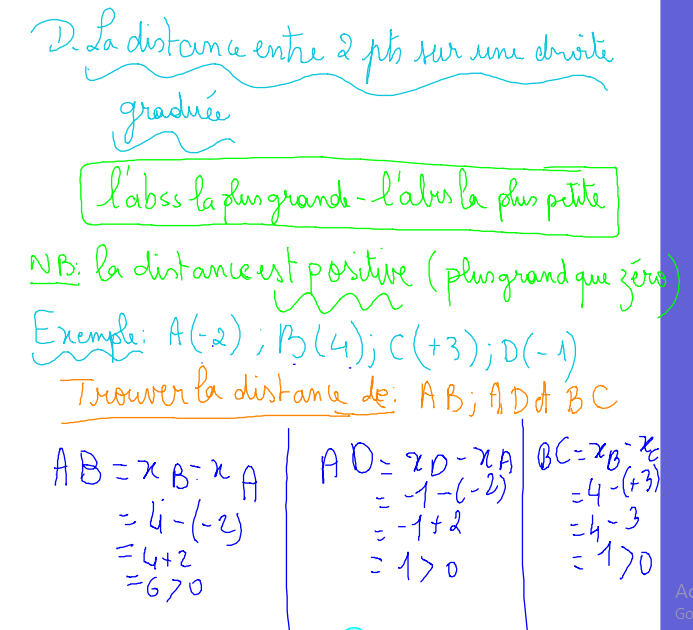 D. La distance entre 2 pts sur une droite
graduée
l'abss la plus grande - l'abs la plus petite
NB: la distance est positive (plus grand que zéro)
Exemple: A(-2) ; B(4); C(+3); D(-1)
Trouver la distance de: AB; AD et BC
AB = x_B - x_A
= 4 - (-2)
= 4+2
= 6 > 0
AD = x_D - x_A
= -1 - (-2)
= -1 + 2
= 1 > 0
BC = x_B - x_C
= 4 - (+3)
= 4 - 3
= 1 > 0